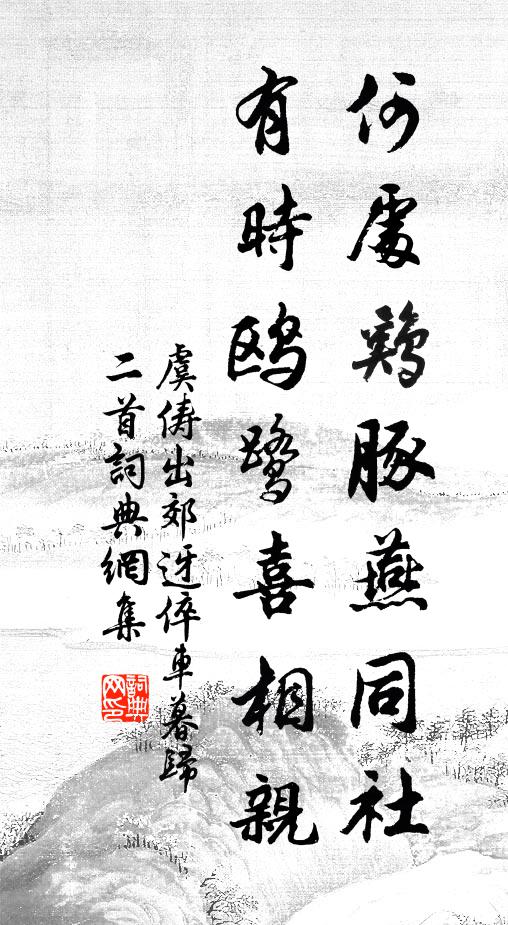 何處鷄豚燕同社
有時鷗鷺喜相親
虞儔出郊迓倅車暮歸
二首詞典網集
詞典
网印